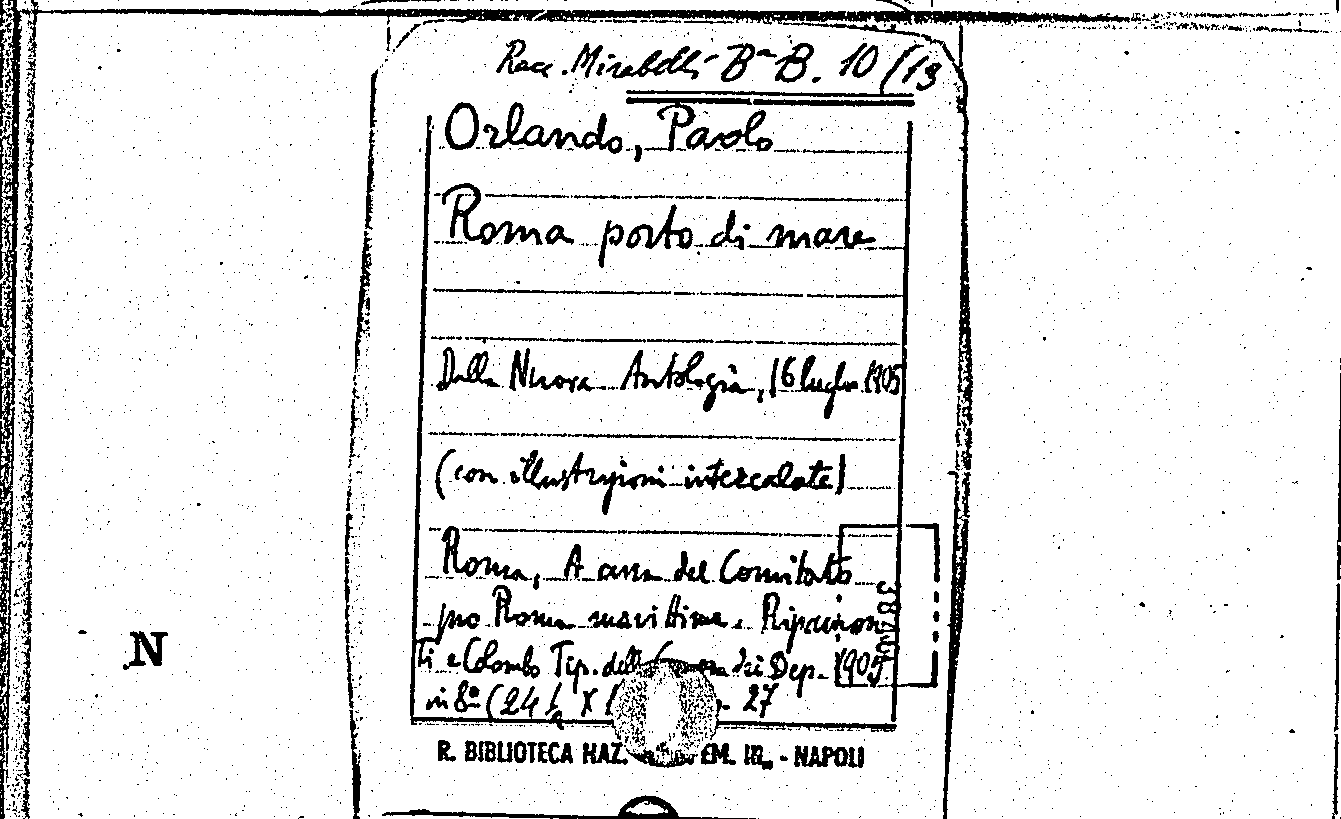 Racc. Mirabelli Bª B. 10/13
Orlando, Paolo
Roma porto di mare
Dalla Nuova Antologia, 16 luglio 1905
(con illustrazioni intercalate)
Roma, A cura del Comitato
pro Roma marittima. Ripamon
ti e Colombo Tip. della Camera dei Dep. 1905
in 8º (24 X 27
R. BIBLIOTECA NAZ. EM. III. - NAPOLI
N